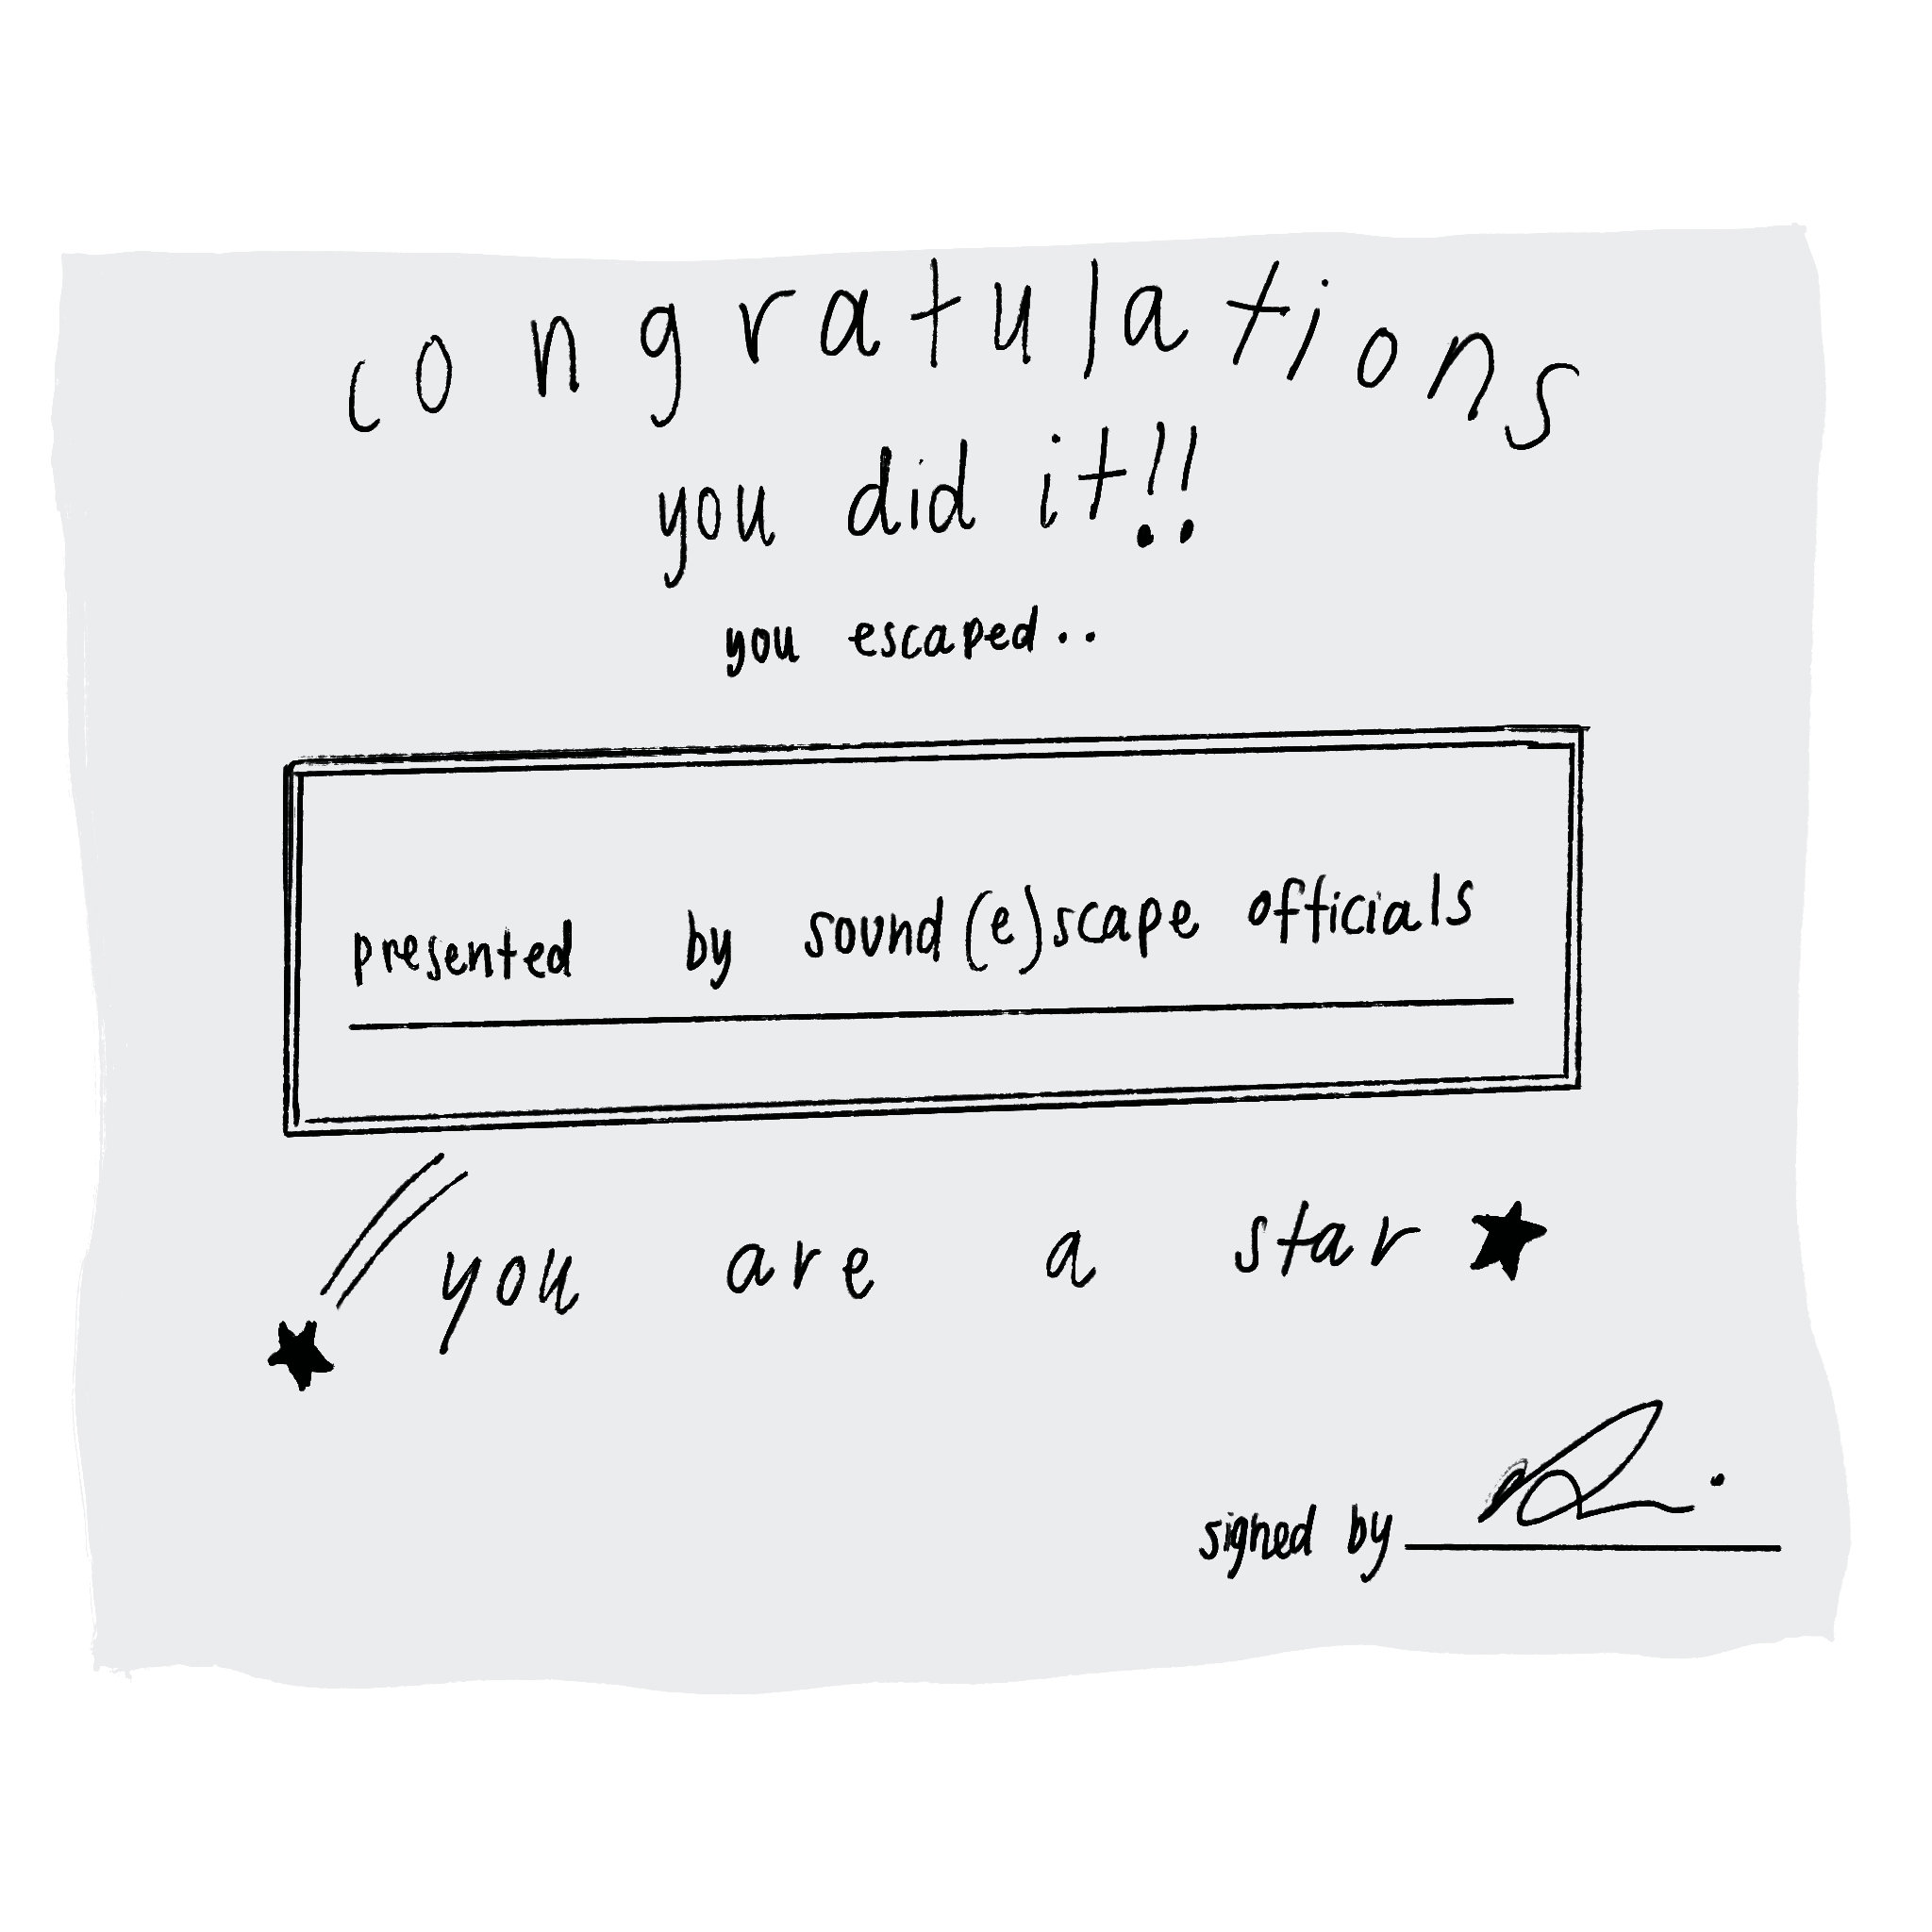 congratulations
you did it!!
you escaped..
presented by sound(e)scape officials
you are a star
signed by